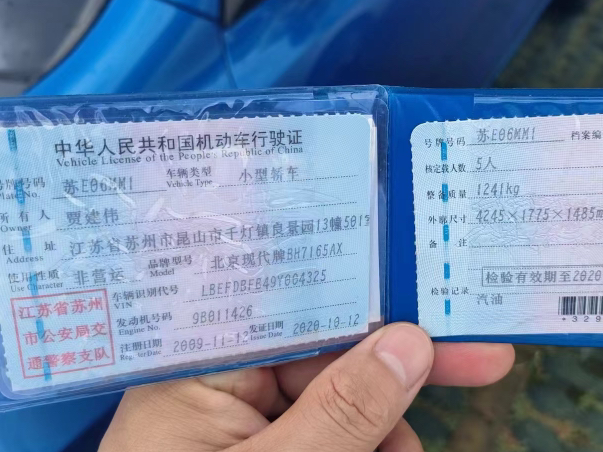 中华人民共和国机动车行驶证
Vehicle License of the People's Republic of China
号牌号码 苏E06MM1 车辆类型 小型轿车
Vehicle Type
所有人 贾建伟
Owner
住址 江苏省苏州市昆山市千灯镇良景园13幢501室
Address
使用性质 非营运 品牌型号 北京现代牌BH7165AX
Use Character Model
江苏省苏州
市公安局交
通警察支队
车辆识别代号 LBEFDBFB49Y684325
VIN
发动机号码 9B011426
Engine No.
注册日期 2009-11-12 发证日期 2020-10-12
Register Date Issue Date
号牌号码 苏E06MM1 档案编
核定载人数 5人
整备质量 1241kg
外廓尺寸 4245×1775×1485mm
备注
检验有效期至2020
检验记录 汽油